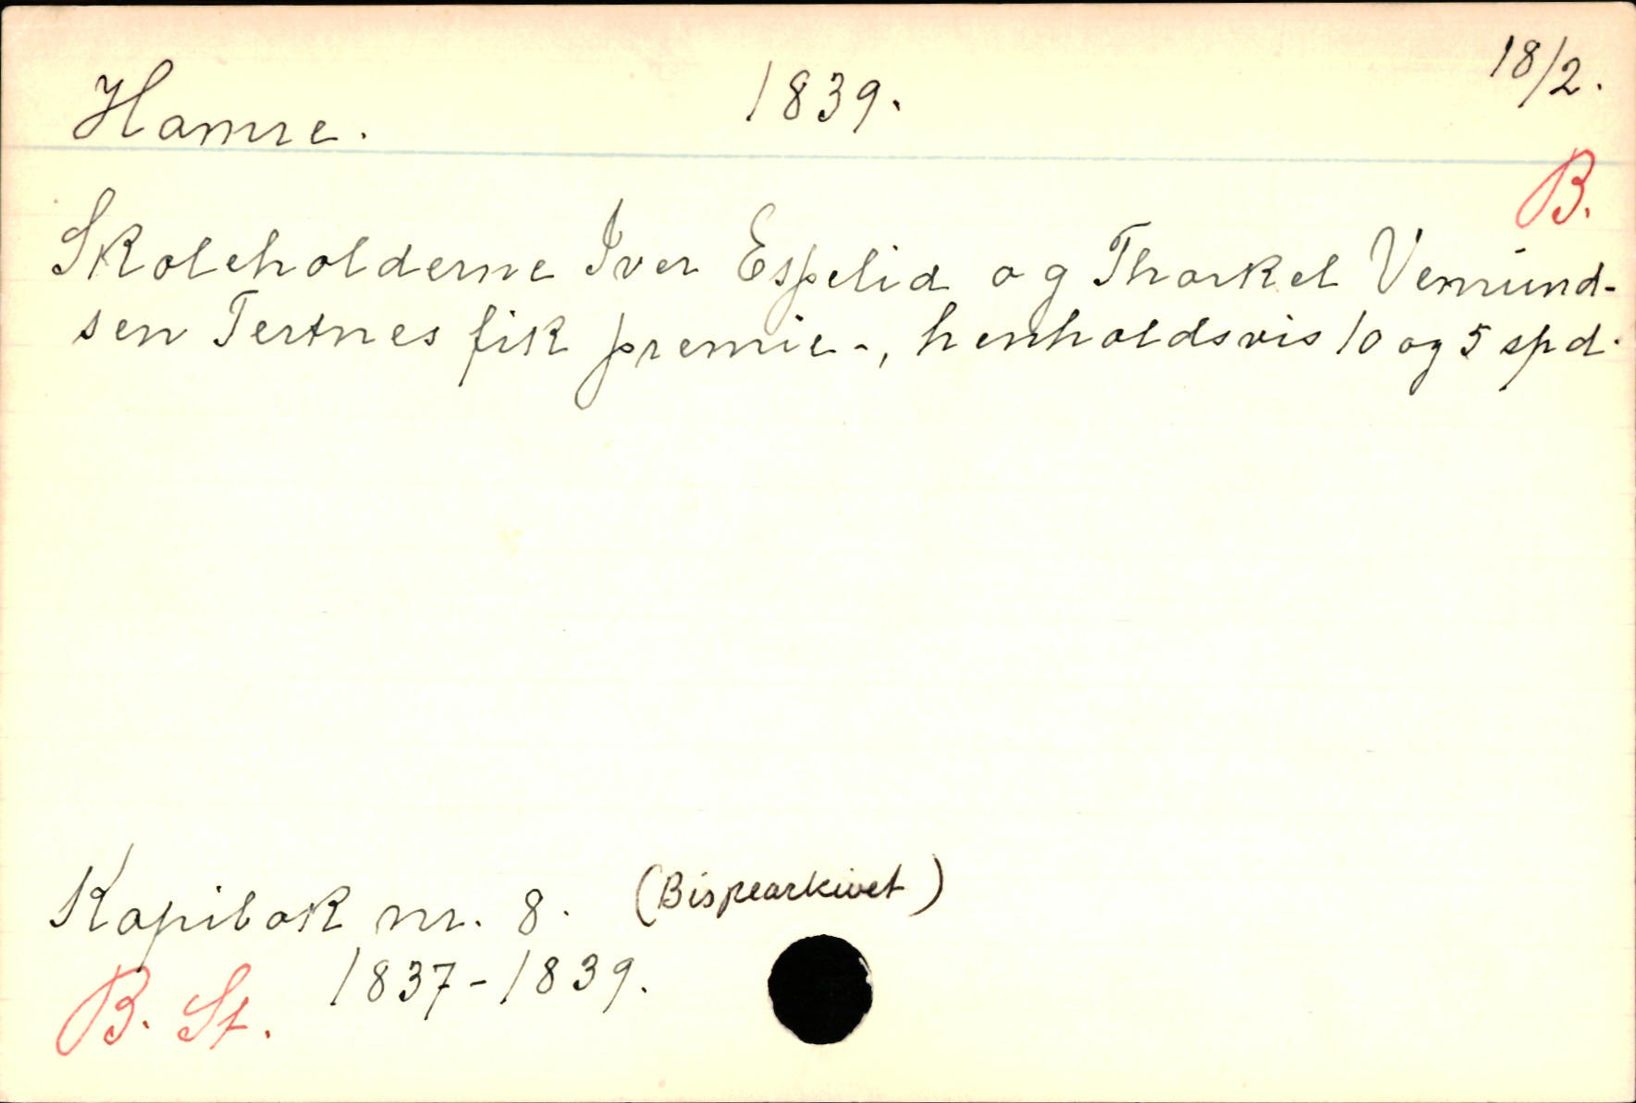 Hamre. 1839. 18/2.
B.
Skoleholderne Iver Espelid og Thorkel Vemund-
sen Tertnes fik premie-, henholdsvis 10 og 5 spd.
Kopibok nr. 8. (Bispearkivet)
1837-1839.
B. St.